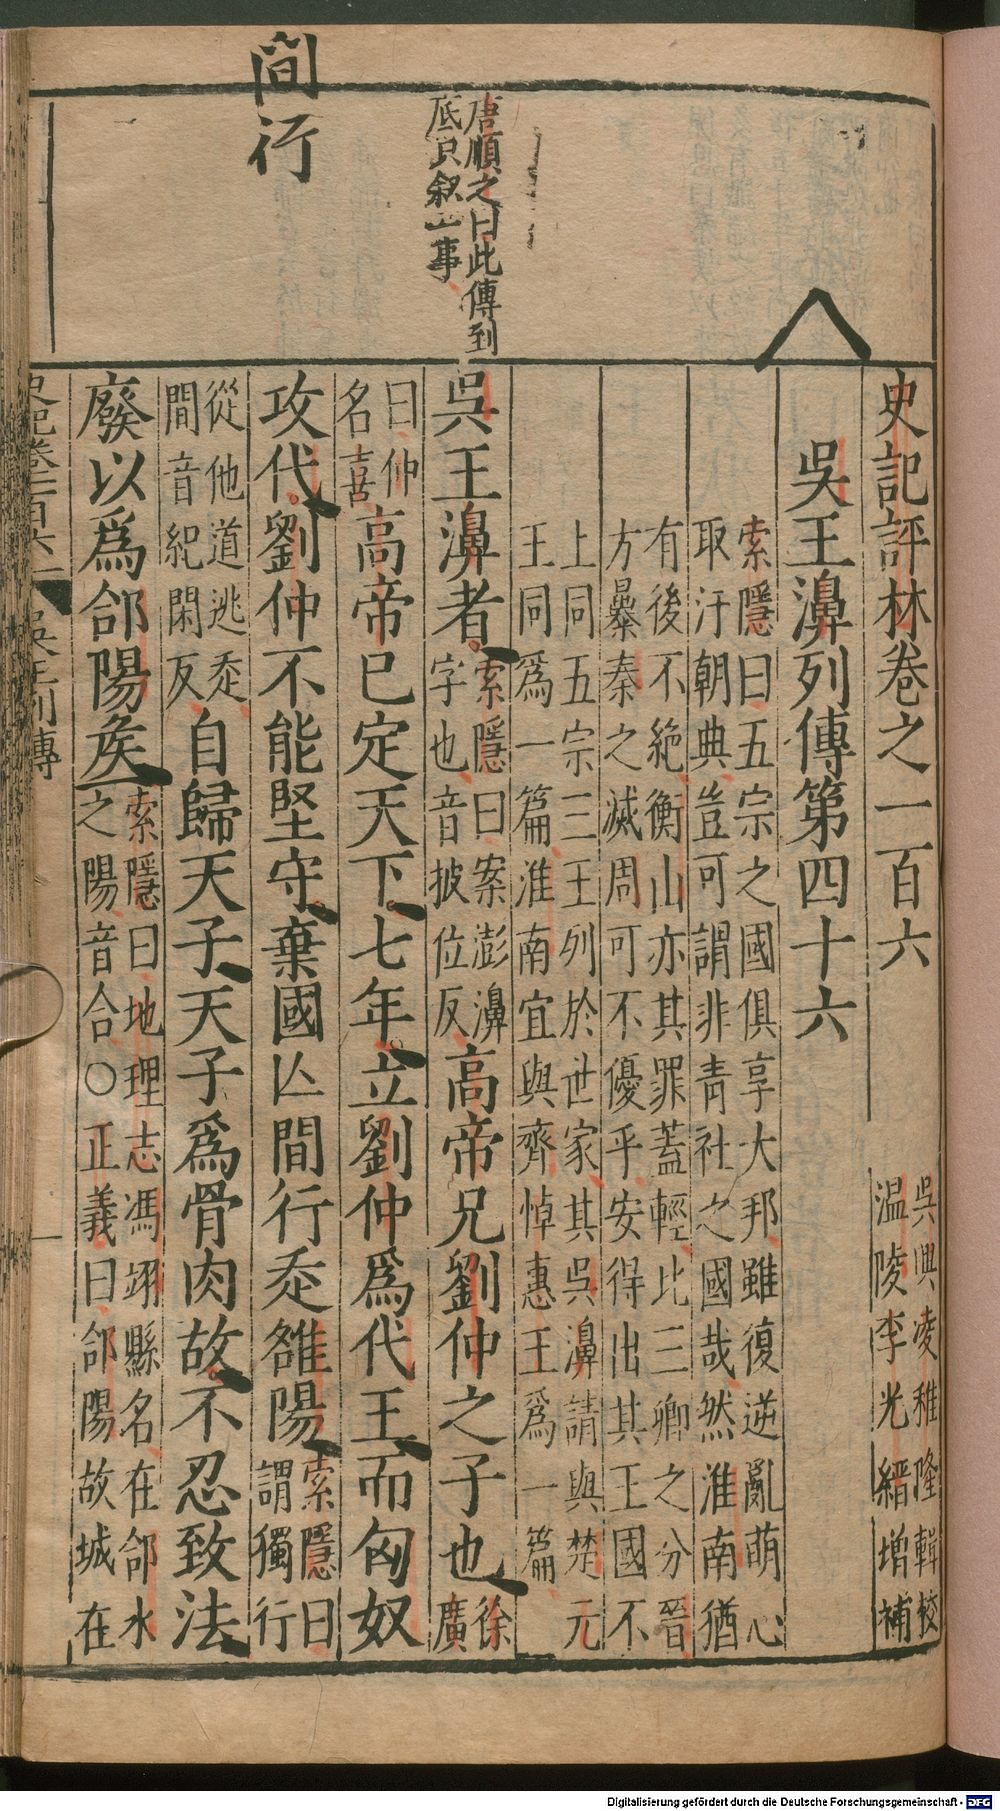 史記評林卷之一百六
吳興凌稚隆輯校
温陵李光縉增補
吳王濞列傳第四十六
索隱曰五宗之國俱享大邦雖復逆亂萌心
取汙朝典豈可謂非青社之國哉然淮南猶
有後不絶衡山亦其罪蓋輕比三卿之分晉
方暴秦之滅周可不優乎安得出其王國不
上同五宗三王列於世家其吳濞請與楚元
王同爲一篇淮南宜與齊悼惠王爲一篇
唐順之曰此傳到
底只叙一事
吳王濞者索隱曰案澎濞字也音披位反高帝兄劉仲之子也徐廣
曰仲名喜高帝已定天下七年立劉仲爲代王而匈奴
間行
攻代劉仲不能堅守棄國亾間行走雒陽索隱曰謂獨行
從他道逃走間音紀閑反自歸天子天子爲骨肉故不忍致法
廢以爲郃陽矦索隱曰地理志馮翊縣名在郃水之陽音合○正義曰郃陽故城在
史記卷一百六 吳王列傳 一
Digitalisierung gefördert durch die Deutsche Forschungsgemeinschaft - DFG